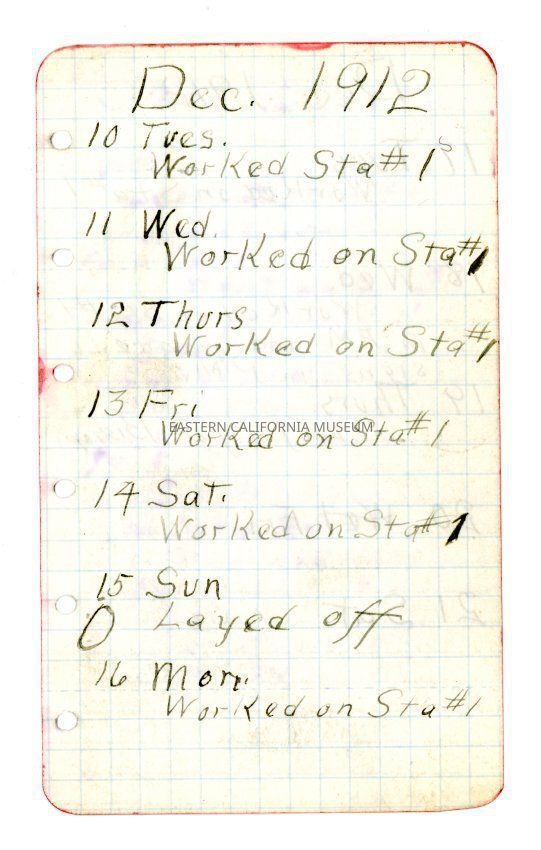 Dec. 1912
10 Tues.
Worked Sta # 1
11 Wed.
Worked on Sta #1
12 Thurs
Worked on Sta #1
13 Fri
EASTERN CALIFORNIA MUSEUM
Worked on Sta #1
14 Sat.
Worked on Sta #1
15 Sun
0 Layed off
16 Mon.
Worked on Sta #1